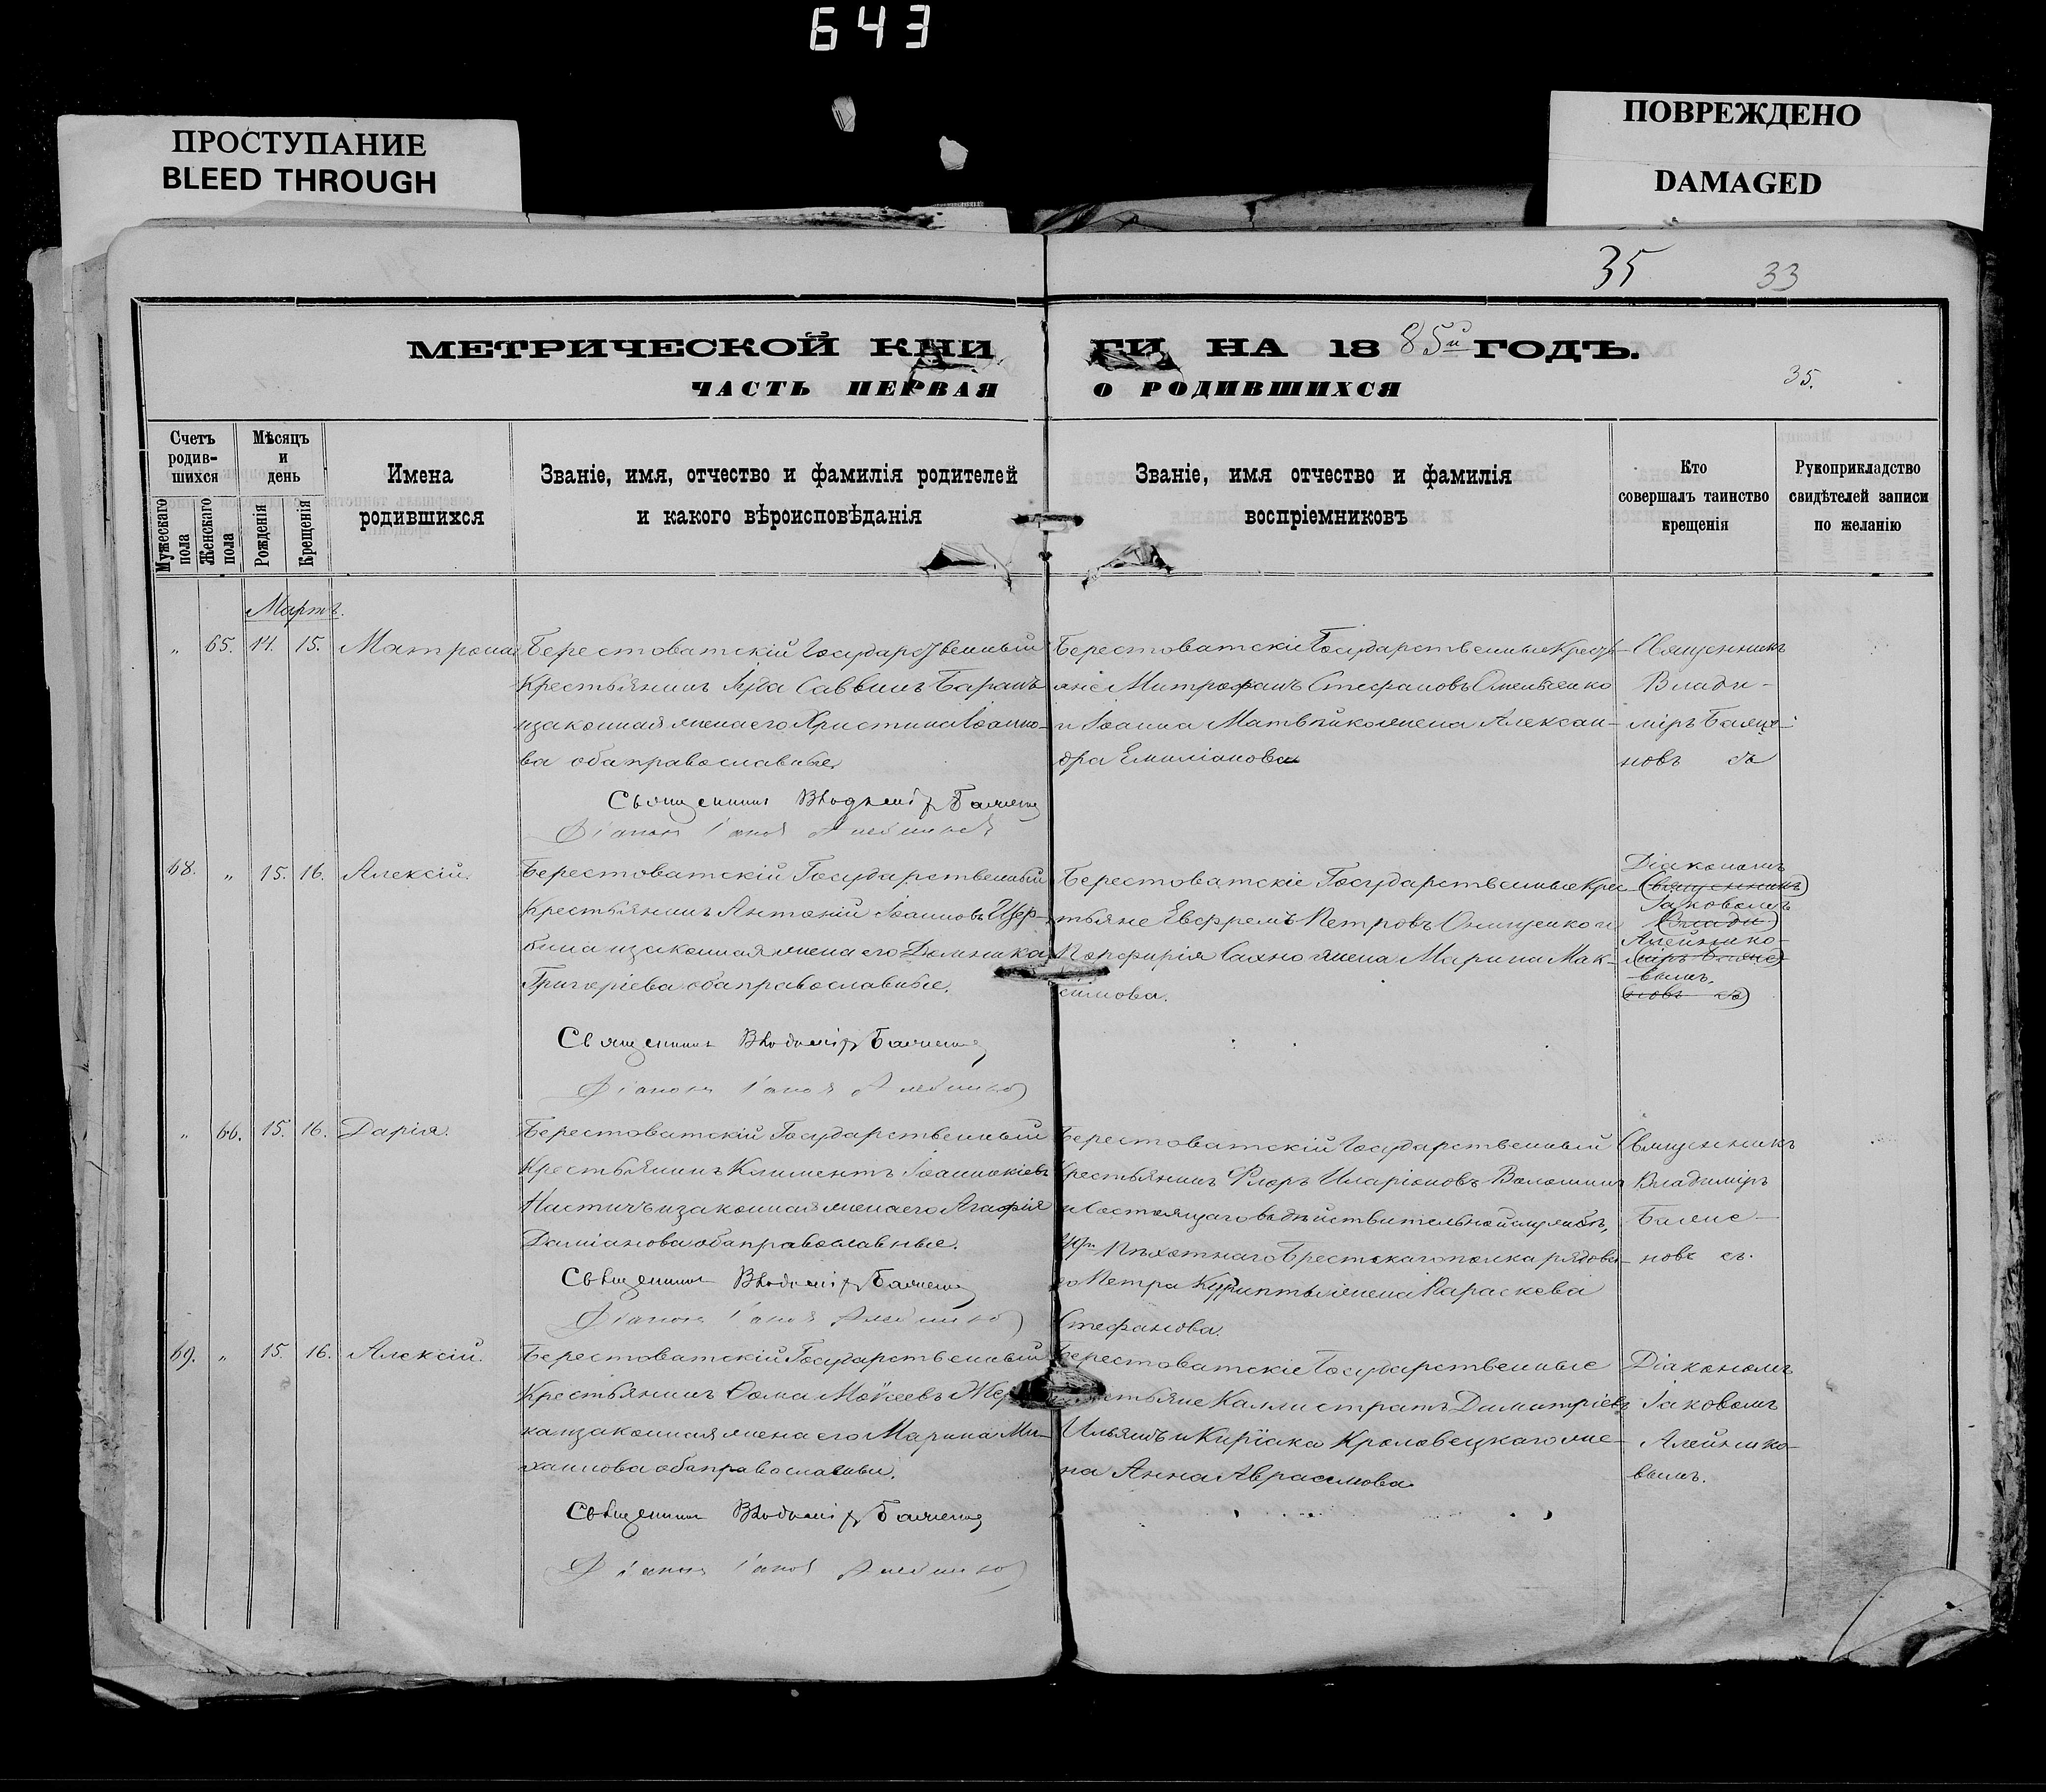 643
ПРОСТУПАНИЕ
BLEED THROUGH
ПОВРЕЖДЕНО
DAMAGED
35
33
МЕТРИЧЕСКОЙ КНИ
ГИ НА 1885й ГОДЪ.
ЧАСТЬ ПЕРВАЯ
О РОДИВШИХСЯ
35.
Счетъ родив-шихся
Мужескаго пола
Женскаго пола
Мѣсяцъ и день
Рожденія
Крещенія
Имена родившихся
Званіе, имя, отчество и фамилія родителей
и какого вѣроисповѣданія
Званіе, имя отчество и фамилія
воспріемниковъ
Кто
совершалъ таинство
крещенія
Рукоприкладство
свидѣтелей записи
по желанію
Мартъ.
„ 65. 14. 15. Матрона
Берестоватскій Государственный
Крестьянинъ Іуда Саввинъ Баранъ
и законная жена его Христина Іоанно-
ва оба православные.
Священникъ Владимір
Діаконъ Іаковъ
Берестоватскіе Государственные Кресть-
яне Митрофанъ Стефановъ Омельченко
и Іоанна Матвѣйко жена Алексан-
дра Емиліанова
Священникъ
Влади-
міръ Баляс-
новъ съ
68. „ 15. 16. Алексій.
Берестоватскій Государственный
Крестьянинъ Антоній Іоанновъ Щер-
бина и законная жена его Домника
Григоріева оба православные.
Священникъ Владимір
Діаконъ Іаковъ
Берестоватскіе Государственные Крес-
тьяне Евфремъ Петровъ Онищенко и
Порфирія Сахно жена Марина Мак-
симова.
Діакономъ
(Священникъ)
Іаковомъ
(Влади)
Алейнико-
(міръ Баляс)
вымъ.
(новъ съ)
„ 66. 15. 16. Дарія.
Берестоватскій Государственный
Крестьянинъ Климентъ Іоанникіевъ
Настичъ и законная жена его Агафія
Даміанова оба православные.
Священникъ Владимір
Діаконъ Іаковъ
Берестоватскій Государственный
Крестьянинъ Флоръ Иларіоновъ Волошинъ
и Состоящаго въ дѣйствительной службѣ,
Пѣхотнаго Брестскаго полка рядова-
го Петра жена Параскева
Стефанова.
Священникъ
Владиміръ
Баляс-
новъ съ.
69. „ 15. 16. Алексій.
Берестоватскій Государственный
Крестьянинъ Ѳома Моѵсеевъ
ка и законная жена его Марина Ми-
хаилова оба православные.
Священникъ Владимір
Діаконъ Іаковъ
Берестоватскіе Государственные
стьяне Каллистратъ Димитріевъ
Ильяшъ и Киріака Кроловецкаго же-
на Анна Аврамова
Діакономъ
Іаковомъ
Алейнико-
вымъ.